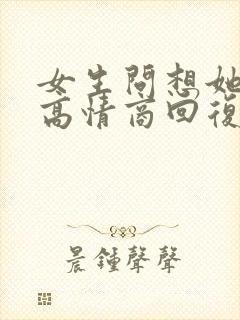 女生問想她
高情商回復
晨鍾聲聲